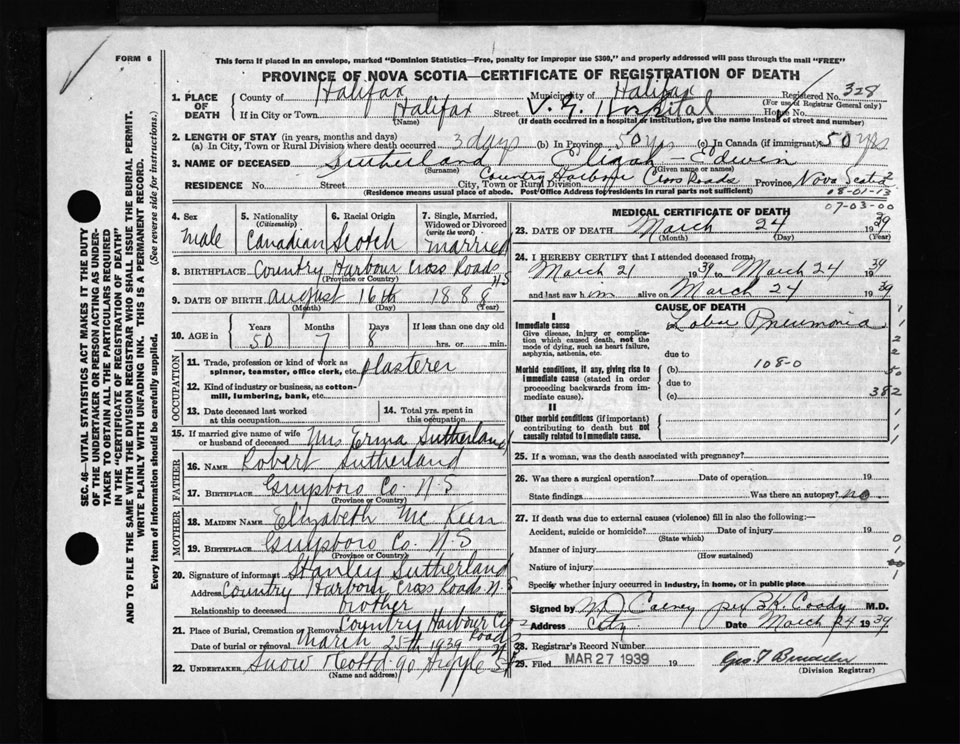 FORM 6
This form if placed in an envelope, marked "Dominion Statistics—Free, penalty for improper use $300," and properly addressed will pass through the mail "FREE"
PROVINCE OF NOVA SCOTIA—CERTIFICATE OF REGISTRATION OF DEATH
Registered No. 328
(For use of Registrar General only)
1. PLACE OF DEATH
County of Halifax Municipality of Halifax
If in City or Town Halifax Street V. G. Hospital House No.
(Name) (If death occurred in a hospital or institution, give the name instead of street and number)
2. LENGTH OF STAY (in years, months and days)
(a) In City, Town or Rural Division where death occurred 3 days (b) In Province 50 yrs (c) In Canada (if immigrant) 50 yrs
3. NAME OF DECEASED Sutherland Elijah - Edwin
(Surname) (Given name or names)
RESIDENCE No. Street City, Town or Rural Division Country Harbour Cross Roads Province Nova Scotia
(Residence means usual place of abode. Post Office Address for Residents in rural parts not sufficient)
08-01-13
07-03-00
4. Sex male
5. Nationality (Citizenship) Canadian
6. Racial Origin Scotch
7. Single, Married, Widowed or Divorced (write the word) married
8. BIRTHPLACE Country Harbour Cross Roads N.S
(Province or Country)
9. DATE OF BIRTH August 16th 1888
(Month) (Day) (Year)
10. AGE in Years 50 Months 7 Days 8 If less than one day old hrs. or min.
OCCUPATION
11. Trade, profession or kind of work as spinner, teamster, office clerk, etc. plasterer
12. Kind of industry or business, as cotton-mill, lumbering, bank, etc.
13. Date deceased last worked at this occupation
14. Total yrs. spent in this occupation
15. If married give name of wife or husband of deceased Mrs Erma Sutherland
FATHER
16. NAME Robert Sutherland
17. BIRTHPLACE Guysboro Co. N-S
(Province or Country)
MOTHER
18. MAIDEN NAME Elizabeth McKeen
19. BIRTHPLACE Guysboro Co. N.S
(Province or Country)
20. Signature of informant Stanley Sutherland
Address Country Harbour Cross Roads N-S
Relationship to deceased brother
21. Place of Burial, Cremation or Removal Country Harbour Cross Roads
Date of burial or removal March 25th 1939
22. UNDERTAKER Snow & Co Ltd 90 Argyle St
(Name and address)
MEDICAL CERTIFICATE OF DEATH
23. DATE OF DEATH March 24 1939
(Month) (Day) (Year)
24. I HEREBY CERTIFY that I attended deceased from
March 21 1939 to March 24 1939
and last saw him alive on March 24 1939
CAUSE OF DEATH
I
Immediate cause (a) Lobar Pneumonia
Give disease, injury or complication which caused death, not the mode of dying, such as heart failure, asphyxia, asthenia, etc.
due to
Morbid conditions, if any, giving rise to immediate cause (stated in order proceeding backwards from immediate cause). (b) 108-0
due to
(c) 382
II
Other morbid conditions (if important) contributing to death but not causally related to immediate cause.
25. If a woman, was the death associated with pregnancy?
26. Was there a surgical operation? Date of operation 19
State findings Was there an autopsy? no
27. If death was due to external causes (violence) fill in also the following:—
Accident, suicide or homicide? Date of injury 19
(State which)
Manner of injury
(How sustained)
Nature of injury
Specify whether injury occurred in industry, in home, or in public place
Signed by per B.K. Coady M.D.
Address City Date March 24 1939
28. Registrar's Record Number
29. Filed MAR 27 1939 19
(Division Registrar)
SEC. 46—VITAL STATISTICS ACT MAKES IT THE DUTY
OF THE UNDERTAKER OR PERSON ACTING AS UNDER-
TAKER TO OBTAIN ALL THE PARTICULARS REQUIRED
IN THE "CERTIFICATE OF REGISTRATION OF DEATH"
AND TO FILE THE SAME WITH THE DIVISION REGISTRAR WHO SHALL ISSUE THE BURIAL PERMIT.
WRITE PLAINLY WITH UNFADING INK. THIS IS A PERMANENT RECORD.
Every item of information should be carefully supplied. (See reverse side for instructions.)